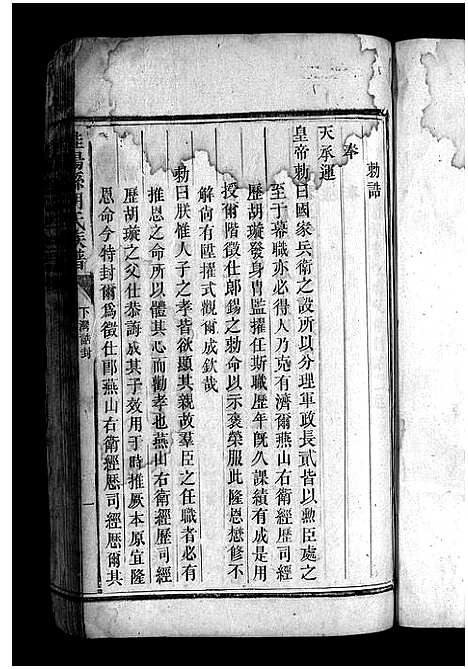 勅誥
奉
天承運
皇帝勅曰國家兵衛之設所以分理軍政長貳皆以勲臣處之
至于幕職亦必得人乃克有濟爾燕山右衛經歴司經
歴胡璇發身胄監擢任斯職歴年既久課績有成是用
授爾階徵仕郎錫之勅命以示褒榮服此隆恩懋修不
解尙有陞擢式觀爾成欽哉
勅曰朕惟人子之孝皆欲顯其親故羣臣之任職者必有
推恩之命所以體其心而勸孝也燕山右衛經歴司經
歴胡璇之父仕恭誨成其子效用于時推厥本原宜隆
恩命今特封爾爲徵仕郎燕山右衛經歴司經歴爾其
胡氏族譜
下灣誥封
一